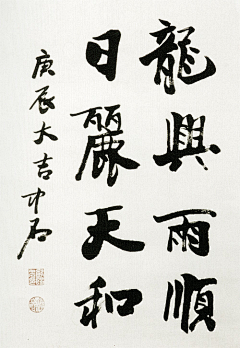 龍興雨順
日麗天和
庚辰大吉中石